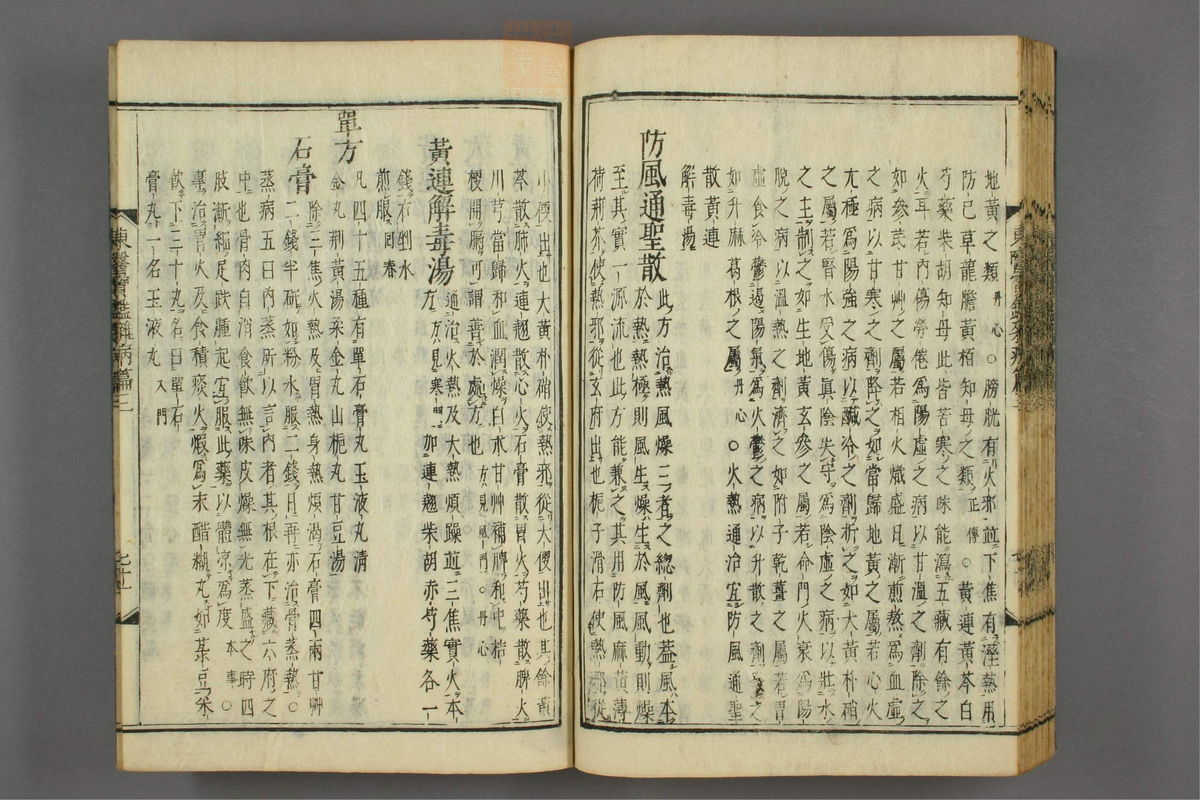 地黃之類丹心○膀胱有火邪並下焦有濕熱用
防已草龍膽黃栢知母之類正傳○黃連黃芩白
芍藥柴胡知母此皆苦寒之味能瀉五藏有餘之
火耳若內傷勞倦爲陽虛之病以甘溫之劑除之
如參芪甘艸之屬若相火熾盛日漸煎熬爲血虛
之病以甘寒之劑降之如當歸地黃之屬若心火
亢極爲陽強之病以鹹冷之劑折之如大黃朴硝
之屬若腎水受傷眞陰失守爲陰虛之病以壯水
之主制之如生地黃玄參之屬若命門火衰爲陽
脫之病以溫熱之劑濟之如附子乾薑之屬若胃
虛食冷鬱遏陽氣爲火鬱之病以升散之劑之
如升麻葛根之屬丹心○火熱通治宜防風通聖
散黃連
解毒湯
防風通聖散此方治熱風燥三者之總劑也蓋風本
於熱熱極則風生燥生於風風動則燥
至其實一源流也此方能兼之其用防風麻黃薄
荷荊芥使熱邪從玄府出也梔子滑石使熱邪從
小便出也大黃朴硝使熱邪從大便出也其餘黃
芩散肺火連翹散心火石膏散胃火芍藥散脾火
川芎當歸和血潤燥白朮甘艸補脾和中桔
梗開膈可謂善於處方也方見風門○丹心
黃連解毒湯通治火熱及大熱煩躁並三焦實火本
方方見寒門加連翹柴胡赤芍藥各一
錢右剉水
煎服同春
單方凡四十五種有單石膏丸玉液丸淸
金丸荊黃湯柔金丸山梔丸甘豆湯
石膏除三焦火熱及胃熱身熱煩渴石膏四兩甘艸
二錢半硏如粉水服二錢日再亦治骨蒸熱○
蒸病五曰內蒸所以言內者其根在下藏六府之
中也骨肉自消食飮無味皮燥無光蒸盛之時四
肢漸細足趺腫起宜服此藥以體涼爲度本事○
專治胃火及食積痰火煆爲末醋糊丸如菉豆米
飮下三十丸名曰單石
膏丸一名玉液丸入門
東醫寶鑑雜病篇三